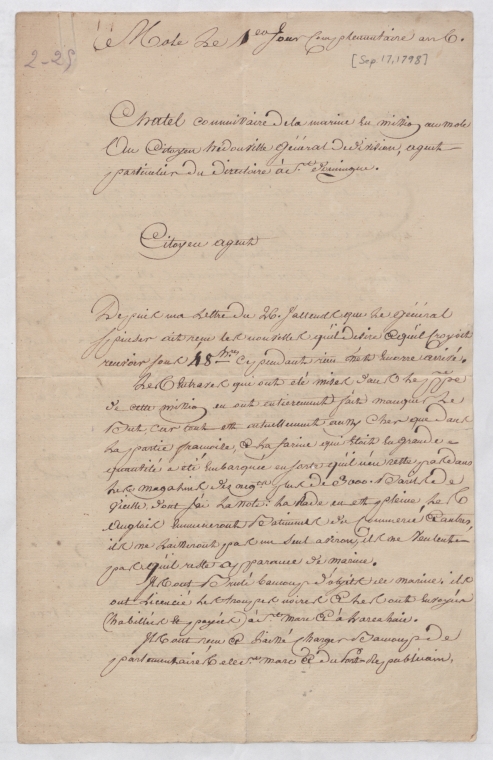 2-25
Mole le 1er Jour Complementaire an 6.
[Sep. 17, 1798]
Chatel commissaire de la marine En mission au mole
Au Citoyen hedouville général de division, agent
particulier du directoire à St. domingue.
Citoyen agent
Depuis ma lettre du 26 J'attends que le général
Spinser ait reçu les nouvelles qu'il desire & qu'il croyoit
recevoir sous 48 hres Cependant rien n'est Encore arrivé.
Les Entraves qui ont été mises dans le
de cette mission en ont entierement fait manquer le
But car tout est actuellement aussi Cher que dans
la partie françoise, & la farine qui Etait en grande
quantité a été Embarquée en sorte qu'il n'en reste pas dans
les magasins des negts plus de 3000. Barils de
vieille dont j'ai la note: la Rade en est pleine, les
anglois Emmeneront Batiments du Commerce & autres
ils ne laisseront pas un seul aviron, ils ne veulent
pas qu'il reste apparence de marine.
Ils ont Brulé beaucoup d'objets de marine: ils
ont licencié les troupes noires & les ont Envoyées
habillées & payées à St. marc & à l'arcahaie.
Ils ont reçu & traité Beaucoup de
parlementaires de St. marc & du Port-Republicain.